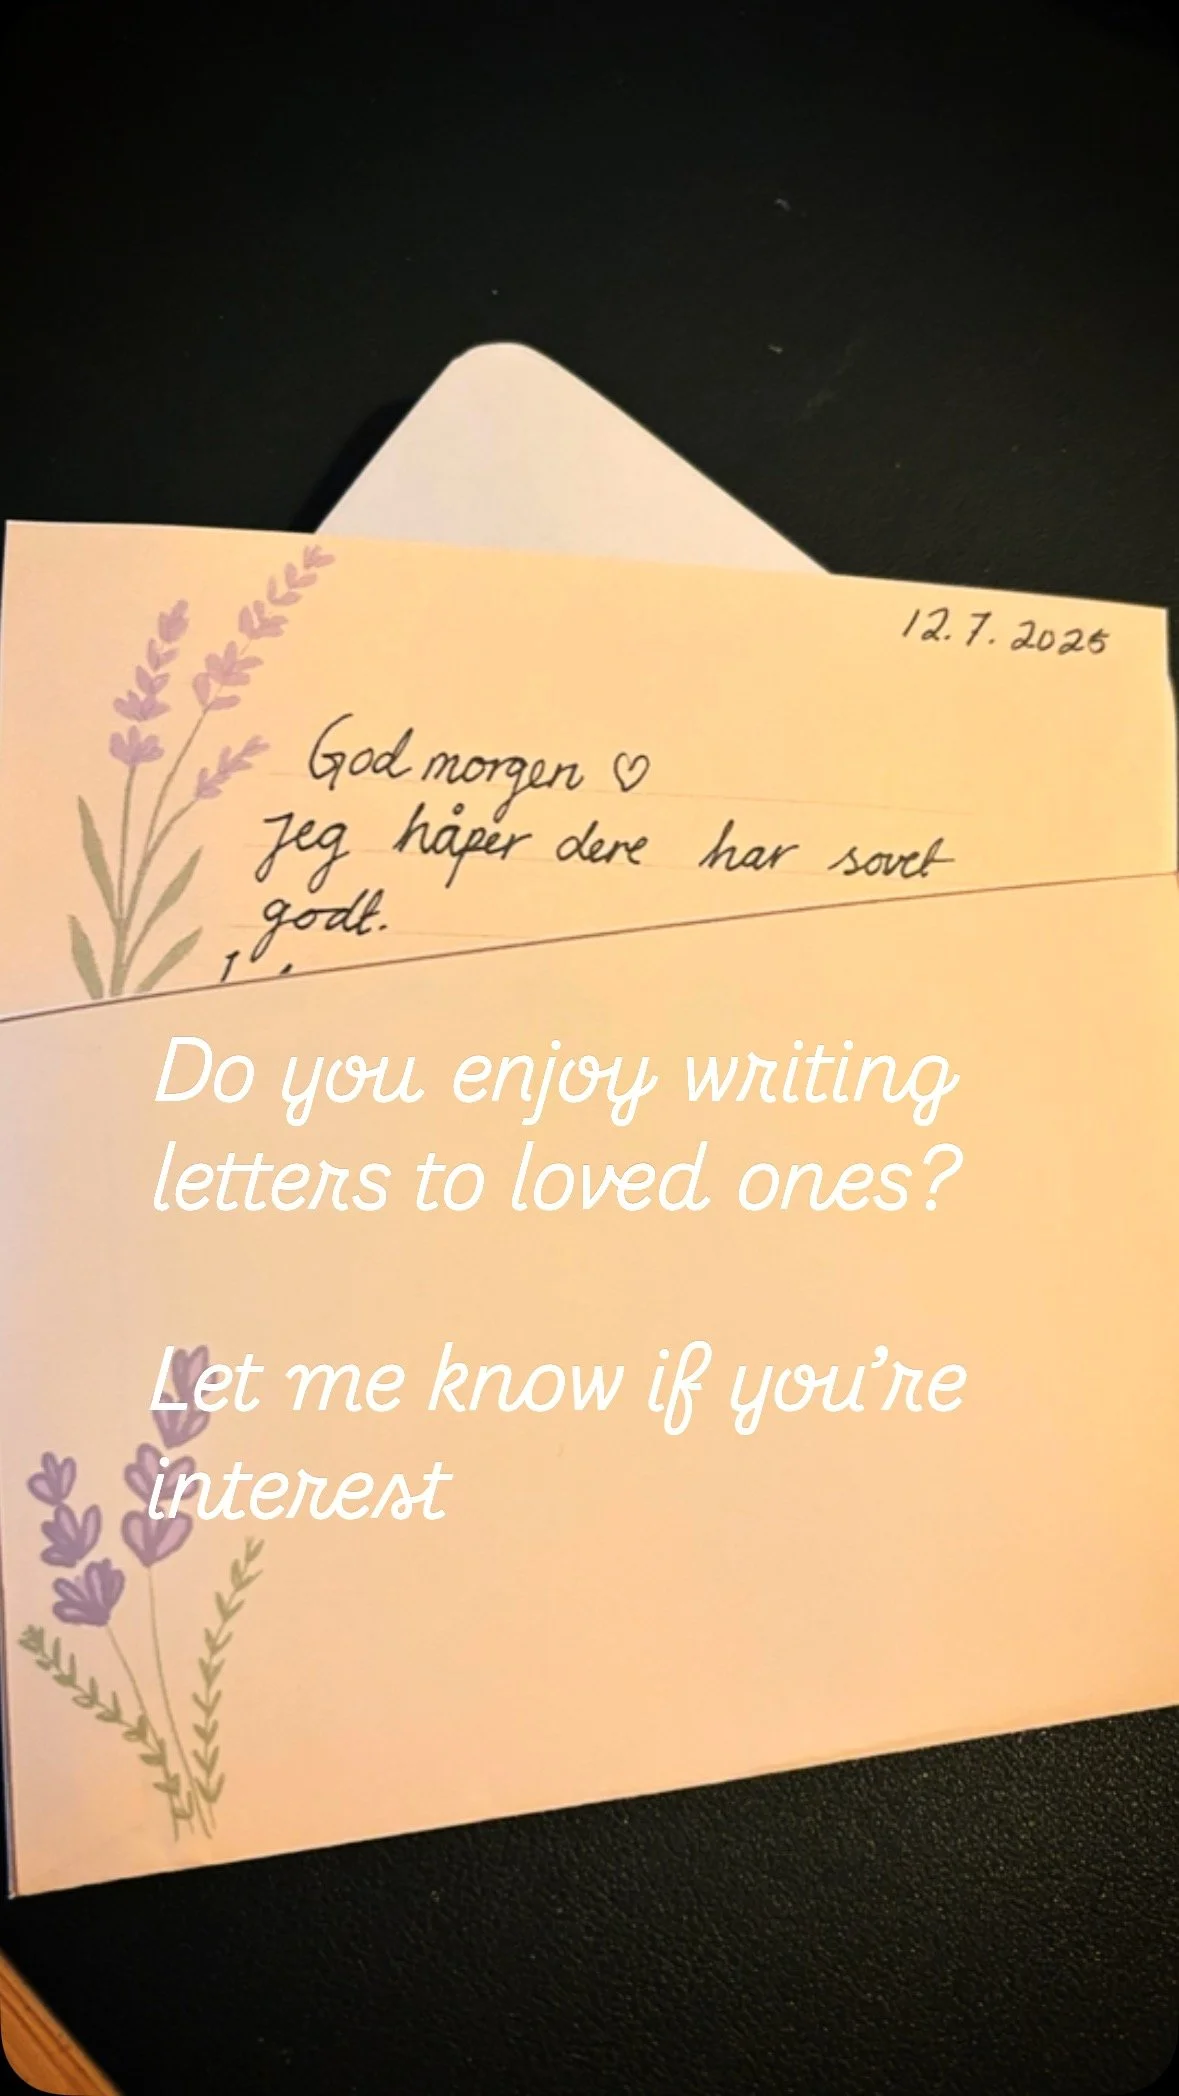 12.7.2025
God morgen ♡
Jeg håper dere har sovet
godt.
Do you enjoy writing
letters to loved ones?
Let me know if you're
interest